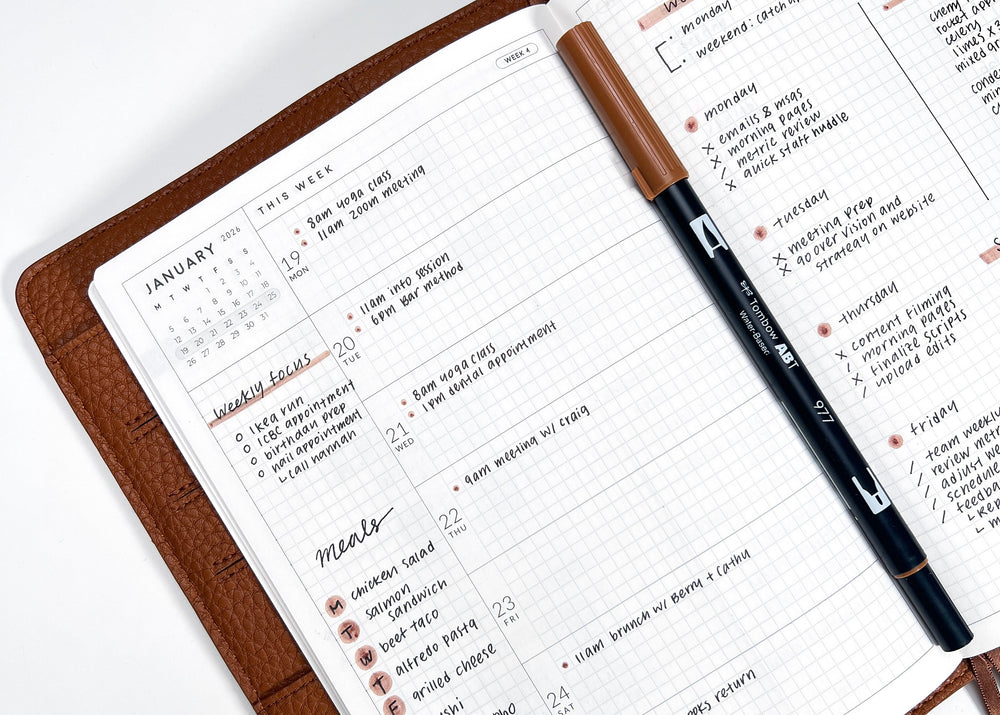 WEEK 4
THIS WEEK
JANUARY 2026
M T W T F S S
1 2 3 4
5 6 7 8 9 10 11
12 13 14 15 16 17 18
19 20 21 22 23 24 25
26 27 28 29 30 31
weekly focus
Ikea run
ICBC appointment
birthday prep
nail appointment
call hannah
meals
M chicken salad
T. salmon
sandwich
W beet taco
T alfredo pasta
F grilled cheese
19
MON
8am yoga class
11am zoom meeting
20
TUE
11am into session
6pm Bar method
21
WED
8am yoga class
1pm dental appointment
22
THU
9am meeting w/ craig
23
FRI
24
SAT
11am brunch w/ Berry + Cathy
return
Tombow ABT
Water-Based
977
monday
weekend: catch up
monday
x emails & msgs
x morning pages
\ metric review
x quick staff huddle
tuesday
x meeting prep
x go over vision and
strategy on website
thursday
x content filming
/ morning pages
x finalize scripts
/ upload edits
friday
/ team weekly
/ review
/ adjust
/ schedule
/
celery
limes x 3